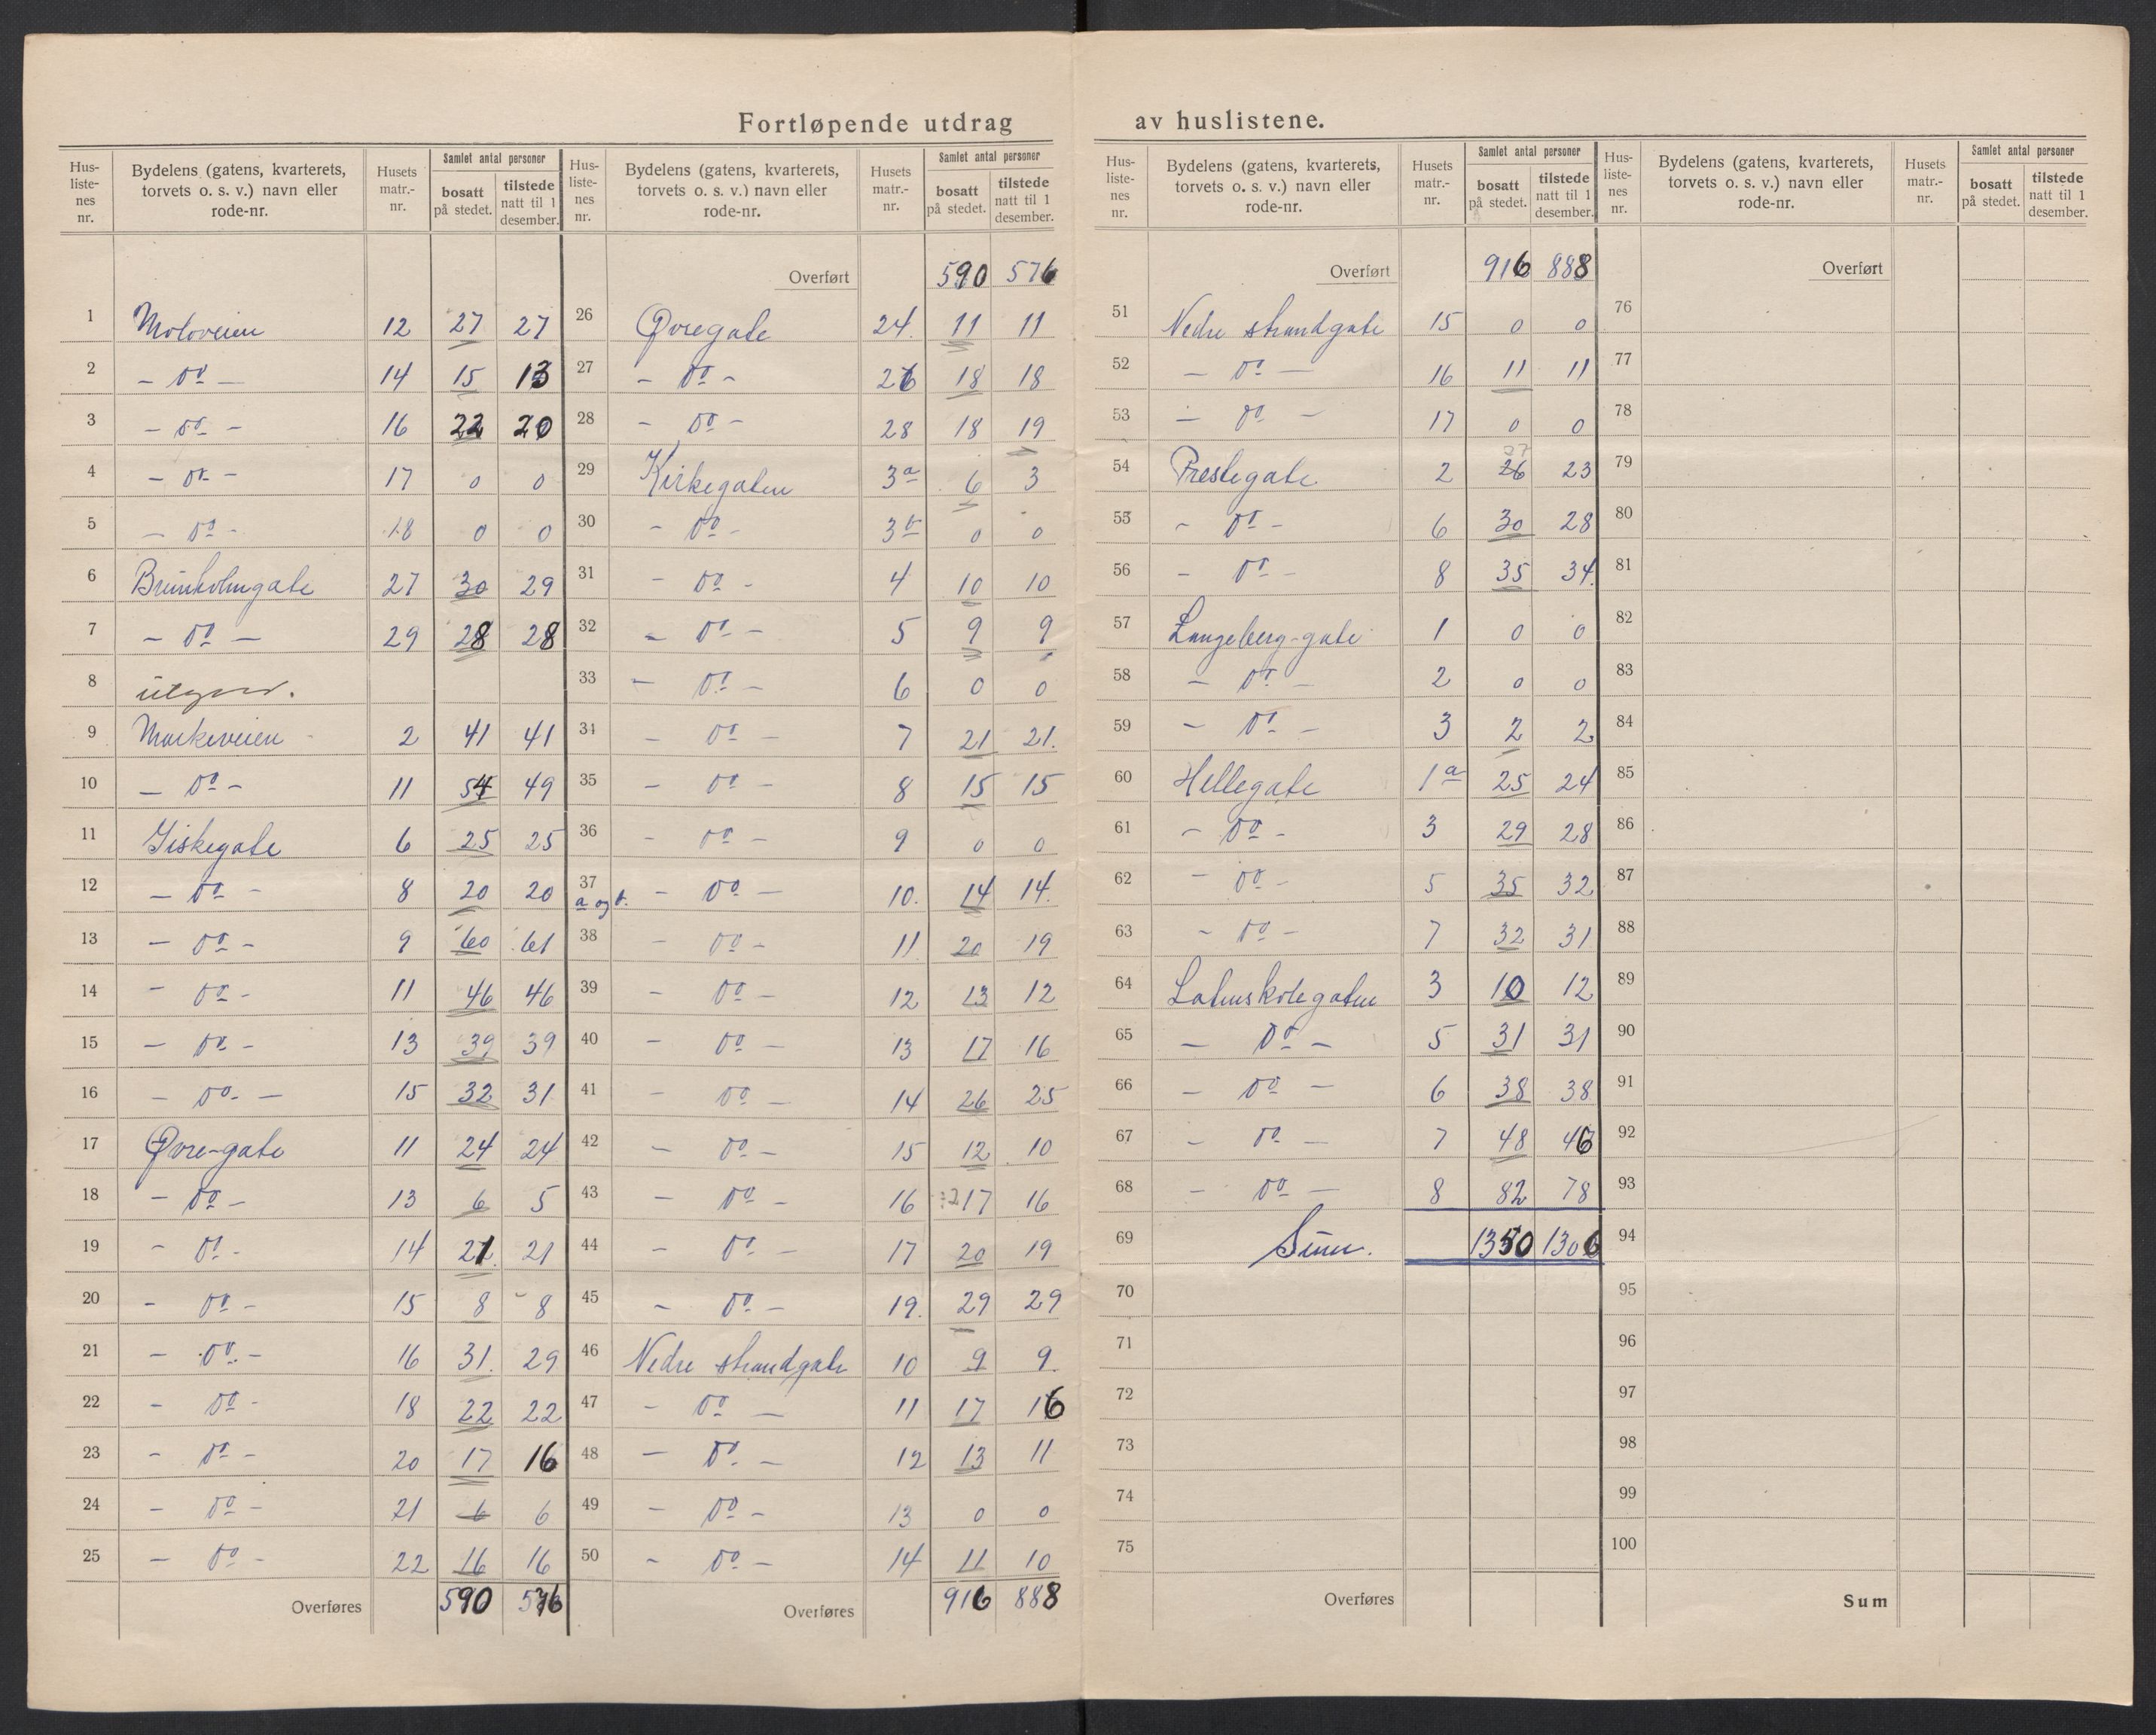 Fortløpende utdrag av huslistene.
Hus-liste-nes nr. | Bydelens (gatens, kvarterets, torvets o. s. v.) navn eller rode-nr. | Husets matr.-nr. | Samlet antal personer | bosatt på stedet. | tilstede natt til 1 desember.
1 Moloveien 12 27 27
2 - do - 14 15 13
3 - do - 16 22 20
4 - do - 17 0 0
5 - do - 18 0 0
6 Brunholmgate 27 30 29
7 - do - 29 28 28
8 utgår.
9 Markeveien 2 41 41
10 - do - 11 54 49
11 Giskegate 6 25 25
12 - do - 8 20 20
13 - do - 9 60 61
14 - do - 11 46 46
15 - do - 13 39 39
16 - do - 15 32 31
17 Øvre-gate 11 24 24
18 - do - 13 6 5
19 - do - 14 21 21
20 - do - 15 8 8
21 - do - 16 31 29
22 - do - 18 22 22
23 - do - 20 17 16
24 - do - 21 6 6
25 - do - 22 16 16
Overføres 590 576
Hus-liste-nes nr. | Bydelens (gatens, kvarterets, torvets o. s. v.) navn eller rode-nr. | Husets matr.-nr. | Samlet antal personer | bosatt på stedet. | tilstede natt til 1 desember.
Overført 590 576
26 Øvregate 24. 11 11
27 - do - 26 18 18
28 - do - 28 18 19
29 Kirkegaten 3a 6 3
30 - do - 3b 0 0
31 - do - 4 10 10
32 - do - 5 9 9
33 - do - 6 0 0
34 - do - 7 21 21.
35 - do - 8 15 15
36 - do - 9 0 0
37 a og b. - do - 10. 14 14.
38 - do - 11 20 19
39 - do - 12 13 12
40 - do - 13 17 16
41 - do - 14 26 25
42 - do - 15 12 10
43 - do - 16 17 16
44 - do - 17 20 19
45 - do - 19. 29 29
46 Nedre strandgate 10 9 9.
47 - do - 11 17 16
48 - do - 12 13 11
49 - do - 13 0 0
50 - do - 14 11 10
Overføres 916 888
Hus-liste-nes nr. | Bydelens (gatens, kvarterets, torvets o. s. v.) navn eller rode-nr. | Husets matr.-nr. | Samlet antal personer | bosatt på stedet. | tilstede natt til 1 desember.
Overført 916 888
51 Nedre strandgate 15 0 0
52 - do - 16 11 11
53 - do - 17 0 0
27
54 Prestegate 2 26 23
55 - do - 6 30 28
56 - do - 8 35 34.
57 Langeberg-gate 1 0 0
58 - do - 2 0 0
59 - do - 3 2 2
60 Hellegate 1a 25 24
61 - do - 3 29 28
62 - do - 5 35 32
63 - do - 7 32 31
64 Latinskolegaten 3 10 12
65 - do - 5 31 31
66 - do - 6 38 38
67 - do - 7 48 46
68 - do - 8 82 78
69 Sum. 1350 1306
70
71
72
73
74
75
Overføres
Hus-liste-nes nr. | Bydelens (gatens, kvarterets, torvets o. s. v.) navn eller rode-nr. | Husets matr.-nr. | Samlet antal personer | bosatt på stedet. | tilstede natt til 1 desember.
Overført
76
77
78
79
80
81
82
83
84
85
86
87
88
89
90
91
92
93
94
95
96
97
98
99
100
Sum